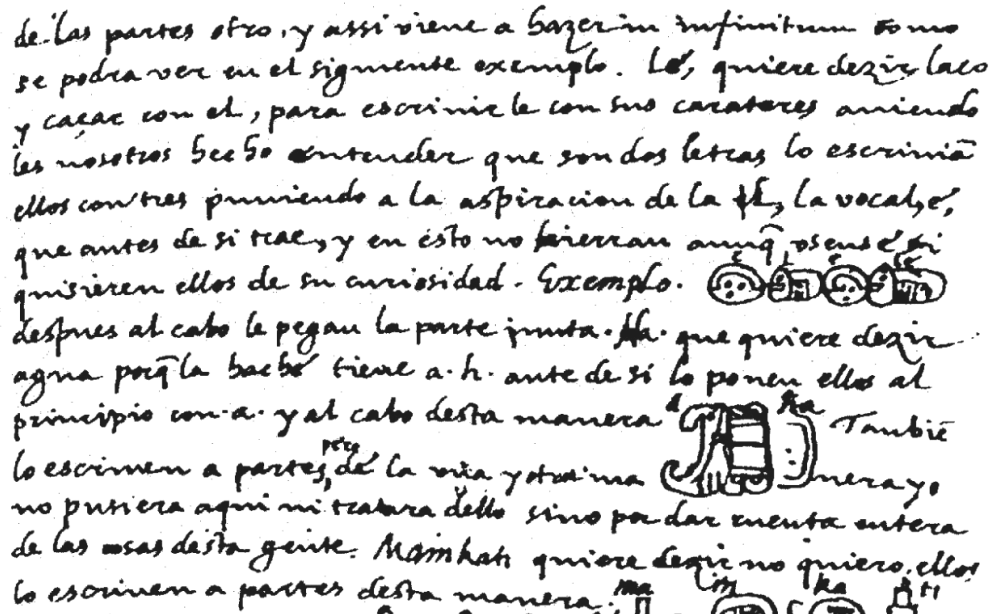 de las partes otro, y assi viene a hazer in infinitum como
se podra ver en el siguiente exemplo. Lé, quiere dezir laço
y caçar con el, para escriuirle con sus carateres auiendo
les nosotros hecho entender que son dos letras lo escriuiã
ellos con tres puniendo a la aspiracion de la l, la vocal, é,
que antes de si trae, y en esto no hierran aunq̃ usense si
quisieren ellos de su curiosidad. Exemplo. e l e le
despues al cabo le pegan la parte junta. Ha. que quiere dezir
agua porq̃ la haché tiene a. h. ante de si lo ponen ellos al
principio con a. y al cabo desta manera a ha Tambiẽ
lo escriuen a partes, pero de la una y otra ma nera yo
no pusiera aqui ni tratara dello sino por dar cuenta entera
de las cosas desta gente. Mainkati quiere dezir no quiero, ellos
lo escriuen a partes desta manera. ma i n ka ti